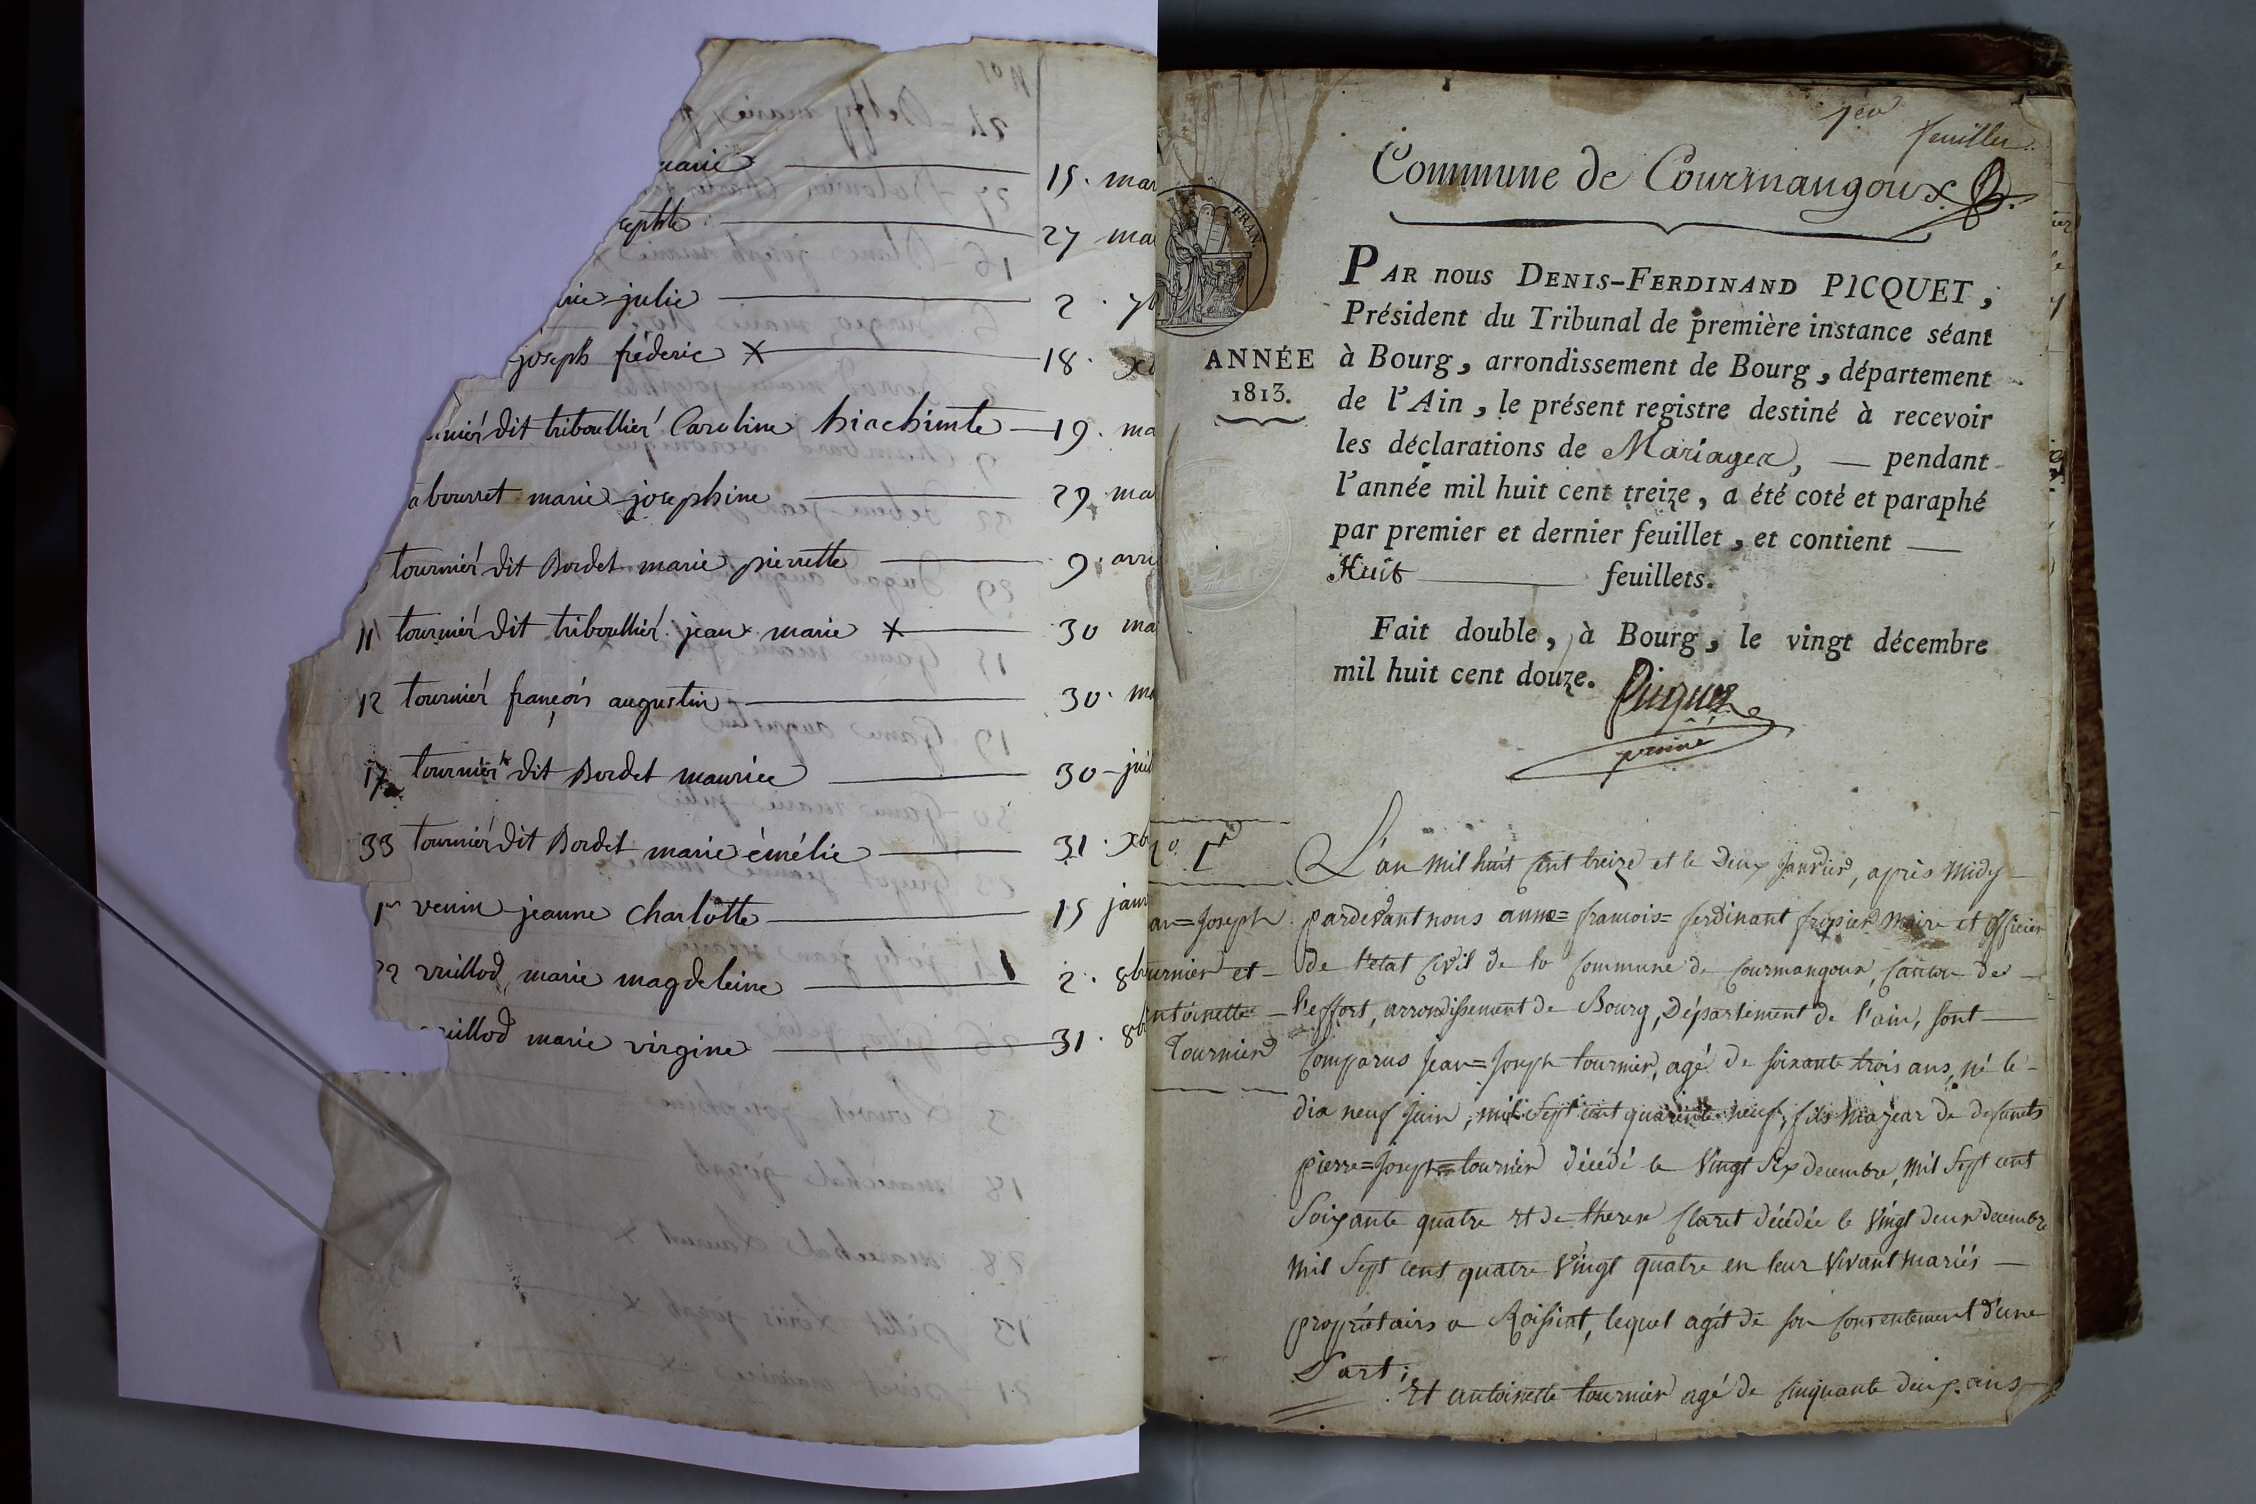 marie 15. mar
27 ma
julie 2. 7b
joseph fréderic X 18. xb
dit triboullier Caroline hiachinte 19. ma
bourret marie josephine 29. ma
tournier dit Bordet marie pierrette 9. avri
11 tournier dit triboullier jean marie X 30 ma
12 tournier françois augustin 30. ma
17 tournier dit Bordet maurice 30 juil
33 tournier dit Bordet marie émélie 31. xb
1er venin jeanne charlotte 15 janv
22 vuillod marie magdeleine 2. 8b
vuillod marie virgine 31. 8b
1er feuillet
Commune de Courmangoux.
FRAN.
ANNÉE
1813.
PAR nous DENIS-FERDINAND PICQUET,
Président du Tribunal de première instance séant
à Bourg, arrondissement de Bourg, département
de l'Ain, le présent registre destiné à recevoir
les déclarations de Mariages, — pendant
l'année mil huit cent treize, a été coté et paraphé
par premier et dernier feuillet, et contient —
Huit — feuillets.
Fait double, à Bourg, le vingt décembre
mil huit cent douze.
Picquet
1er
an=Joseph
urnier et
ntoinette
Tournier
L'an mil huit cent treize et le deux Janvier, après midy
pardevant nous anne=francois=ferdinant maire et officier
de l'etat civil de la commune de Courmangoux, Canton de
treffort, arrondissement de Bourg, Département de l'ain, sont
Comparus Jean=Joseph tournier, agé de soixante trois ans, né le
dix neuf Juin, mil sept cent quarente neuf, fils majeur de defunts
pierre=Joseph=tournier décédé le vingt six decembre, mil sept cent
Soixante quatre et de therese Claret décédée le vingt deux decembre
mil sept cent quatre vingt quatre en leur vivant mariés
propriétairs a Roissiat, lequel agit de son consentement d'une
part;
Et antoinette tournier agé de cinquante deux ans